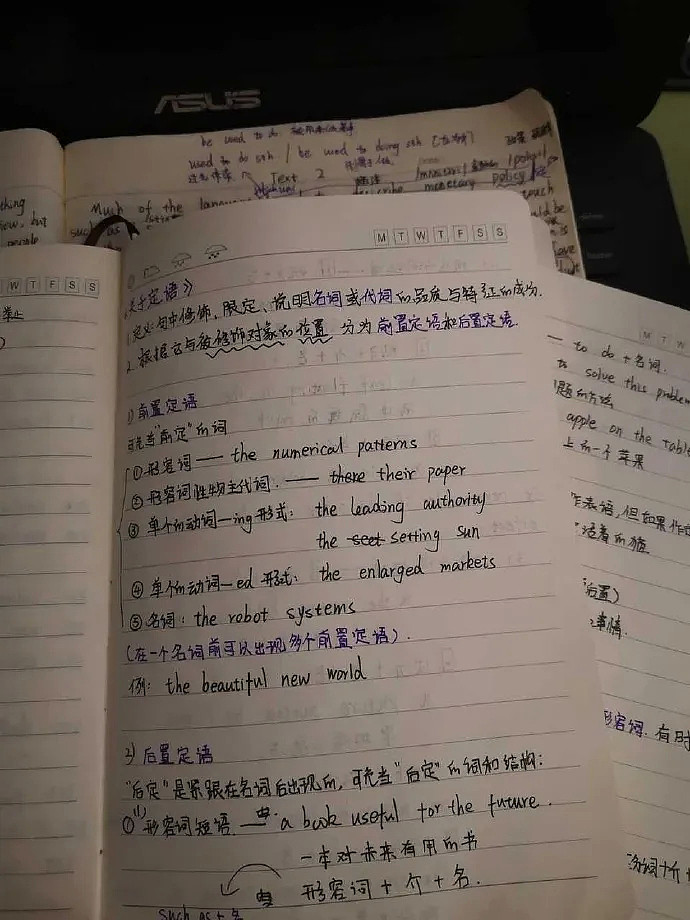 ASUS
be used to do
used to do sth / be used to doing sth
Text 2
Much of the
such as
monetary policy
M T W T F S S
W T F S S
关于定语》
1.定义:句中修饰、限定、说明名词或代词的品质与特征的成分.
2.根据它与被修饰对象的位置 分为前置定语和后置定语.
1) 前置定语
可充当"前定"的词
①形容词 —— the numerical patterns
②形容词性物主代词: —— there their paper
③ 单个的动词—ing形式: the leading authority
the seet setting sun
④ 单个的动词—ed 形式: the enlarged markets
⑤ 名词: the robot systems
(在一个名词前可以出现多个前置定语).
例: the beautiful new world
2) 后置定语
"后定"是紧跟在名词后出现的, 可充当"后定"的词和结构:
① 形容词短语 —— a book useful for the future.
一本对未来有用的书
形容词 + 介 + 名.
such as + 名
M T W
— to do + 名词.
to solve this problem
题的方法
apple on the table
上的一个苹果
作表语, 但如果作
活着的猫
后置)
事情.
形容词. 有时